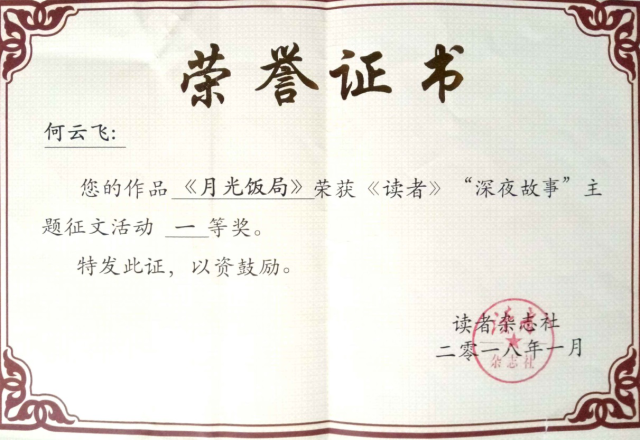 荣誉证书
何云飞:
您的作品《月光饭局》荣获《读者》“深夜故事”主
题征文活动 一 等奖。
特发此证，以资鼓励。
读者杂志社
二零一八年一月
读者
杂志社